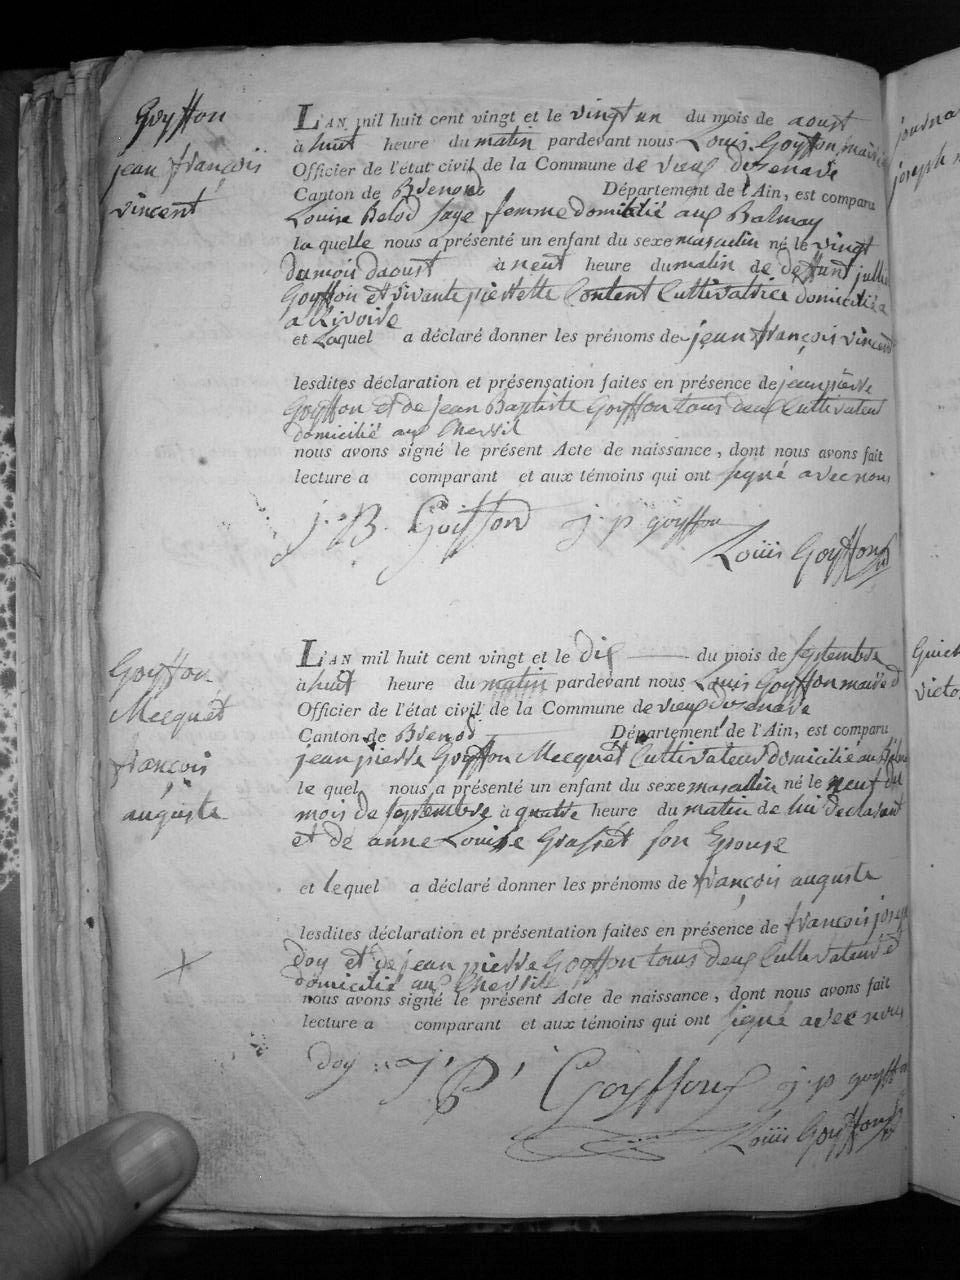 Goyffon
jean françois
vincent
L'AN mil huit cent vingt et le vingt un du mois de aoust
à huit heure du matin pardevant nous Louis Goyffon maire
Officier de l'état civil de la Commune de vieux disenave
Canton de Brenod Département de l'Ain, est comparu
Louise Belod sage femme domicilié aux Balmay
la quelle nous a présenté un enfant du sexe masculin né le vingt
du mois daoust à neuf heure du matin de deffunt
Goyffon et vivante pierrette Content Cultivatrice domiciliéa
a
et Laquel a déclaré donner les prénoms de jean françois vincent
lesdites déclaration et présensation faites en présence de jean pierre
Goyffon et de jean Baptiste Goyffon tous deux Cultivateur
domicilié aux
nous avons signé le présent Acte de naissance, dont nous avons fait
lecture a comparant et aux témoins qui ont signé avec nous
j. B. Goiffon j. p goyffon
Louis Goyffon
Goyffon
Mecquet
françois
auguste
L'AN mil huit cent vingt et le dix du mois de septembre
à huit heure du matin pardevant nous Louis Goyffon maire
Officier de l'état civil de la Commune de vieux disenave
Canton de Brenod Département de l'Ain, est comparu
jean pierre Goyffon Mecquet Cultivateur domicilié au
le quel nous a présenté un enfant du sexe masculin né le neuf du
mois de septembre à quatre heure du matin de lui declarant
et de anne Louise Grasset son Epouse
et lequel a déclaré donner les prénoms de françois auguste
lesdites déclaration et présentation faites en présence de françois
doy et de jean pierre Goyffon tous deux Cultivateur
domicilié aux
nous avons signé le présent Acte de naissance, dont nous avons fait
lecture a comparant et aux témoins qui ont signé avec nous
doy J. P. Goyffon j. p goyffon
Louis Goyffon